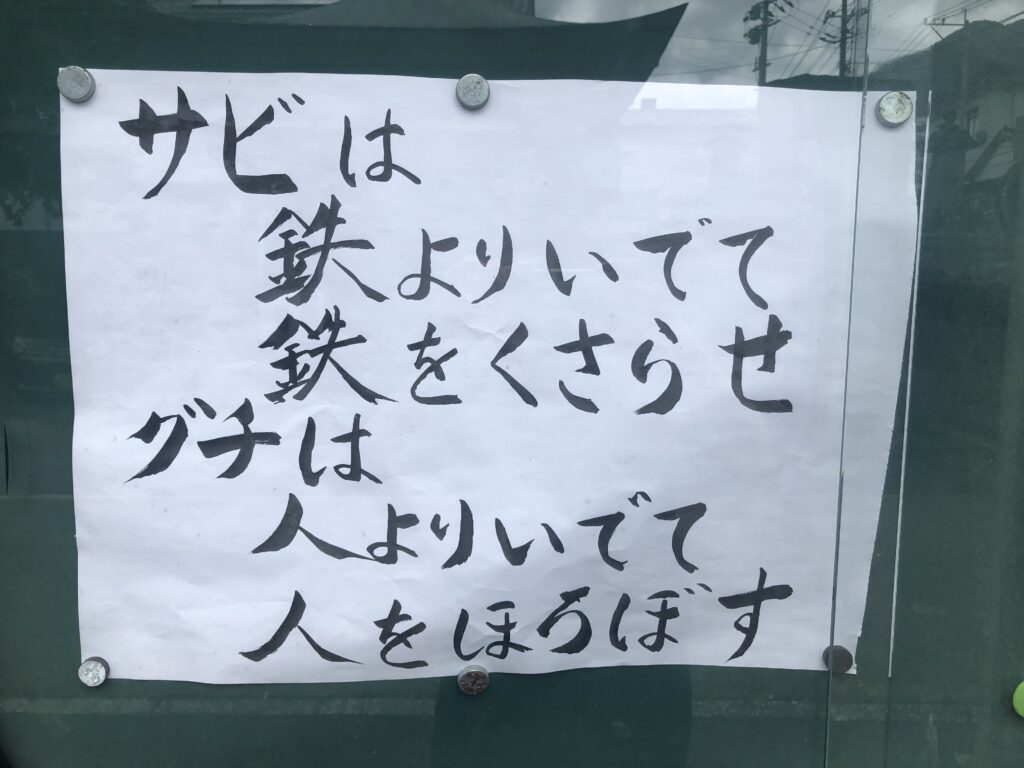 サビは
鉄よりいでて
鉄をくさらせ
グチは
人よりいでて
人をほろぼす